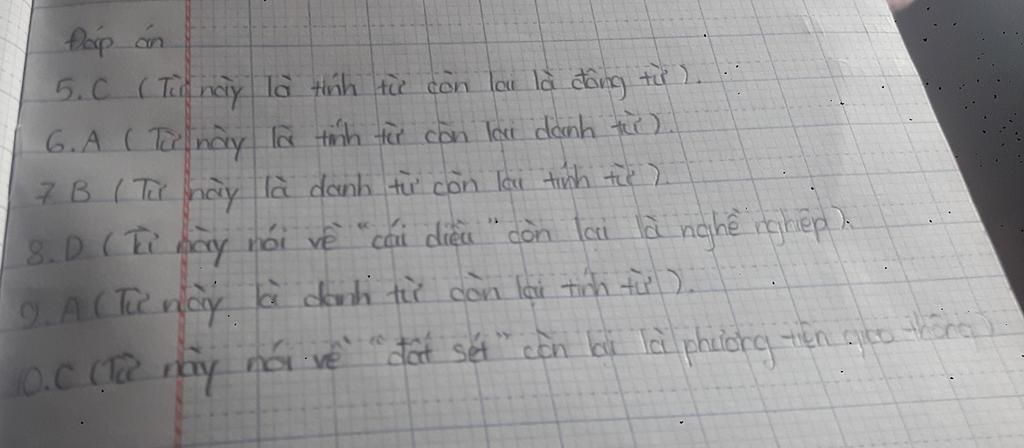 Đáp án
5. C (Từ này là tính từ còn lại là động từ).
6. A (Từ này là tính từ còn lại danh từ).
7 B (Từ này là danh từ còn lại tính từ)
8. D (Từ này nói về "cái diều" còn lại là nghề nghiệp).
9. A (Từ này là danh từ còn lại tính từ).
10. C (Từ này nói về "đất sét" còn lại là phương tiện giao thông)